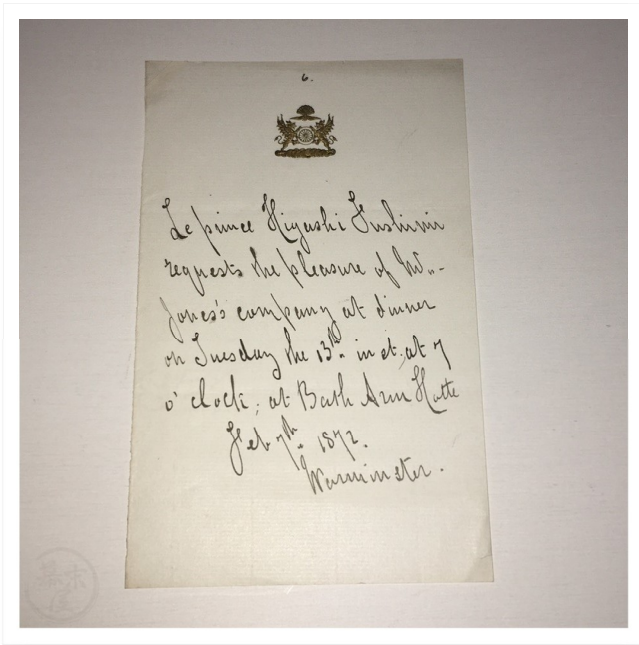 6.
Le prince Higashi Fushimi
requests the pleasure of Mr.
Jones's company at dinner
on Tuesday the 13th. inst. at 7
o'clock; at Bath Arm Hotte
Feb 7th. 1872.
Warminster.